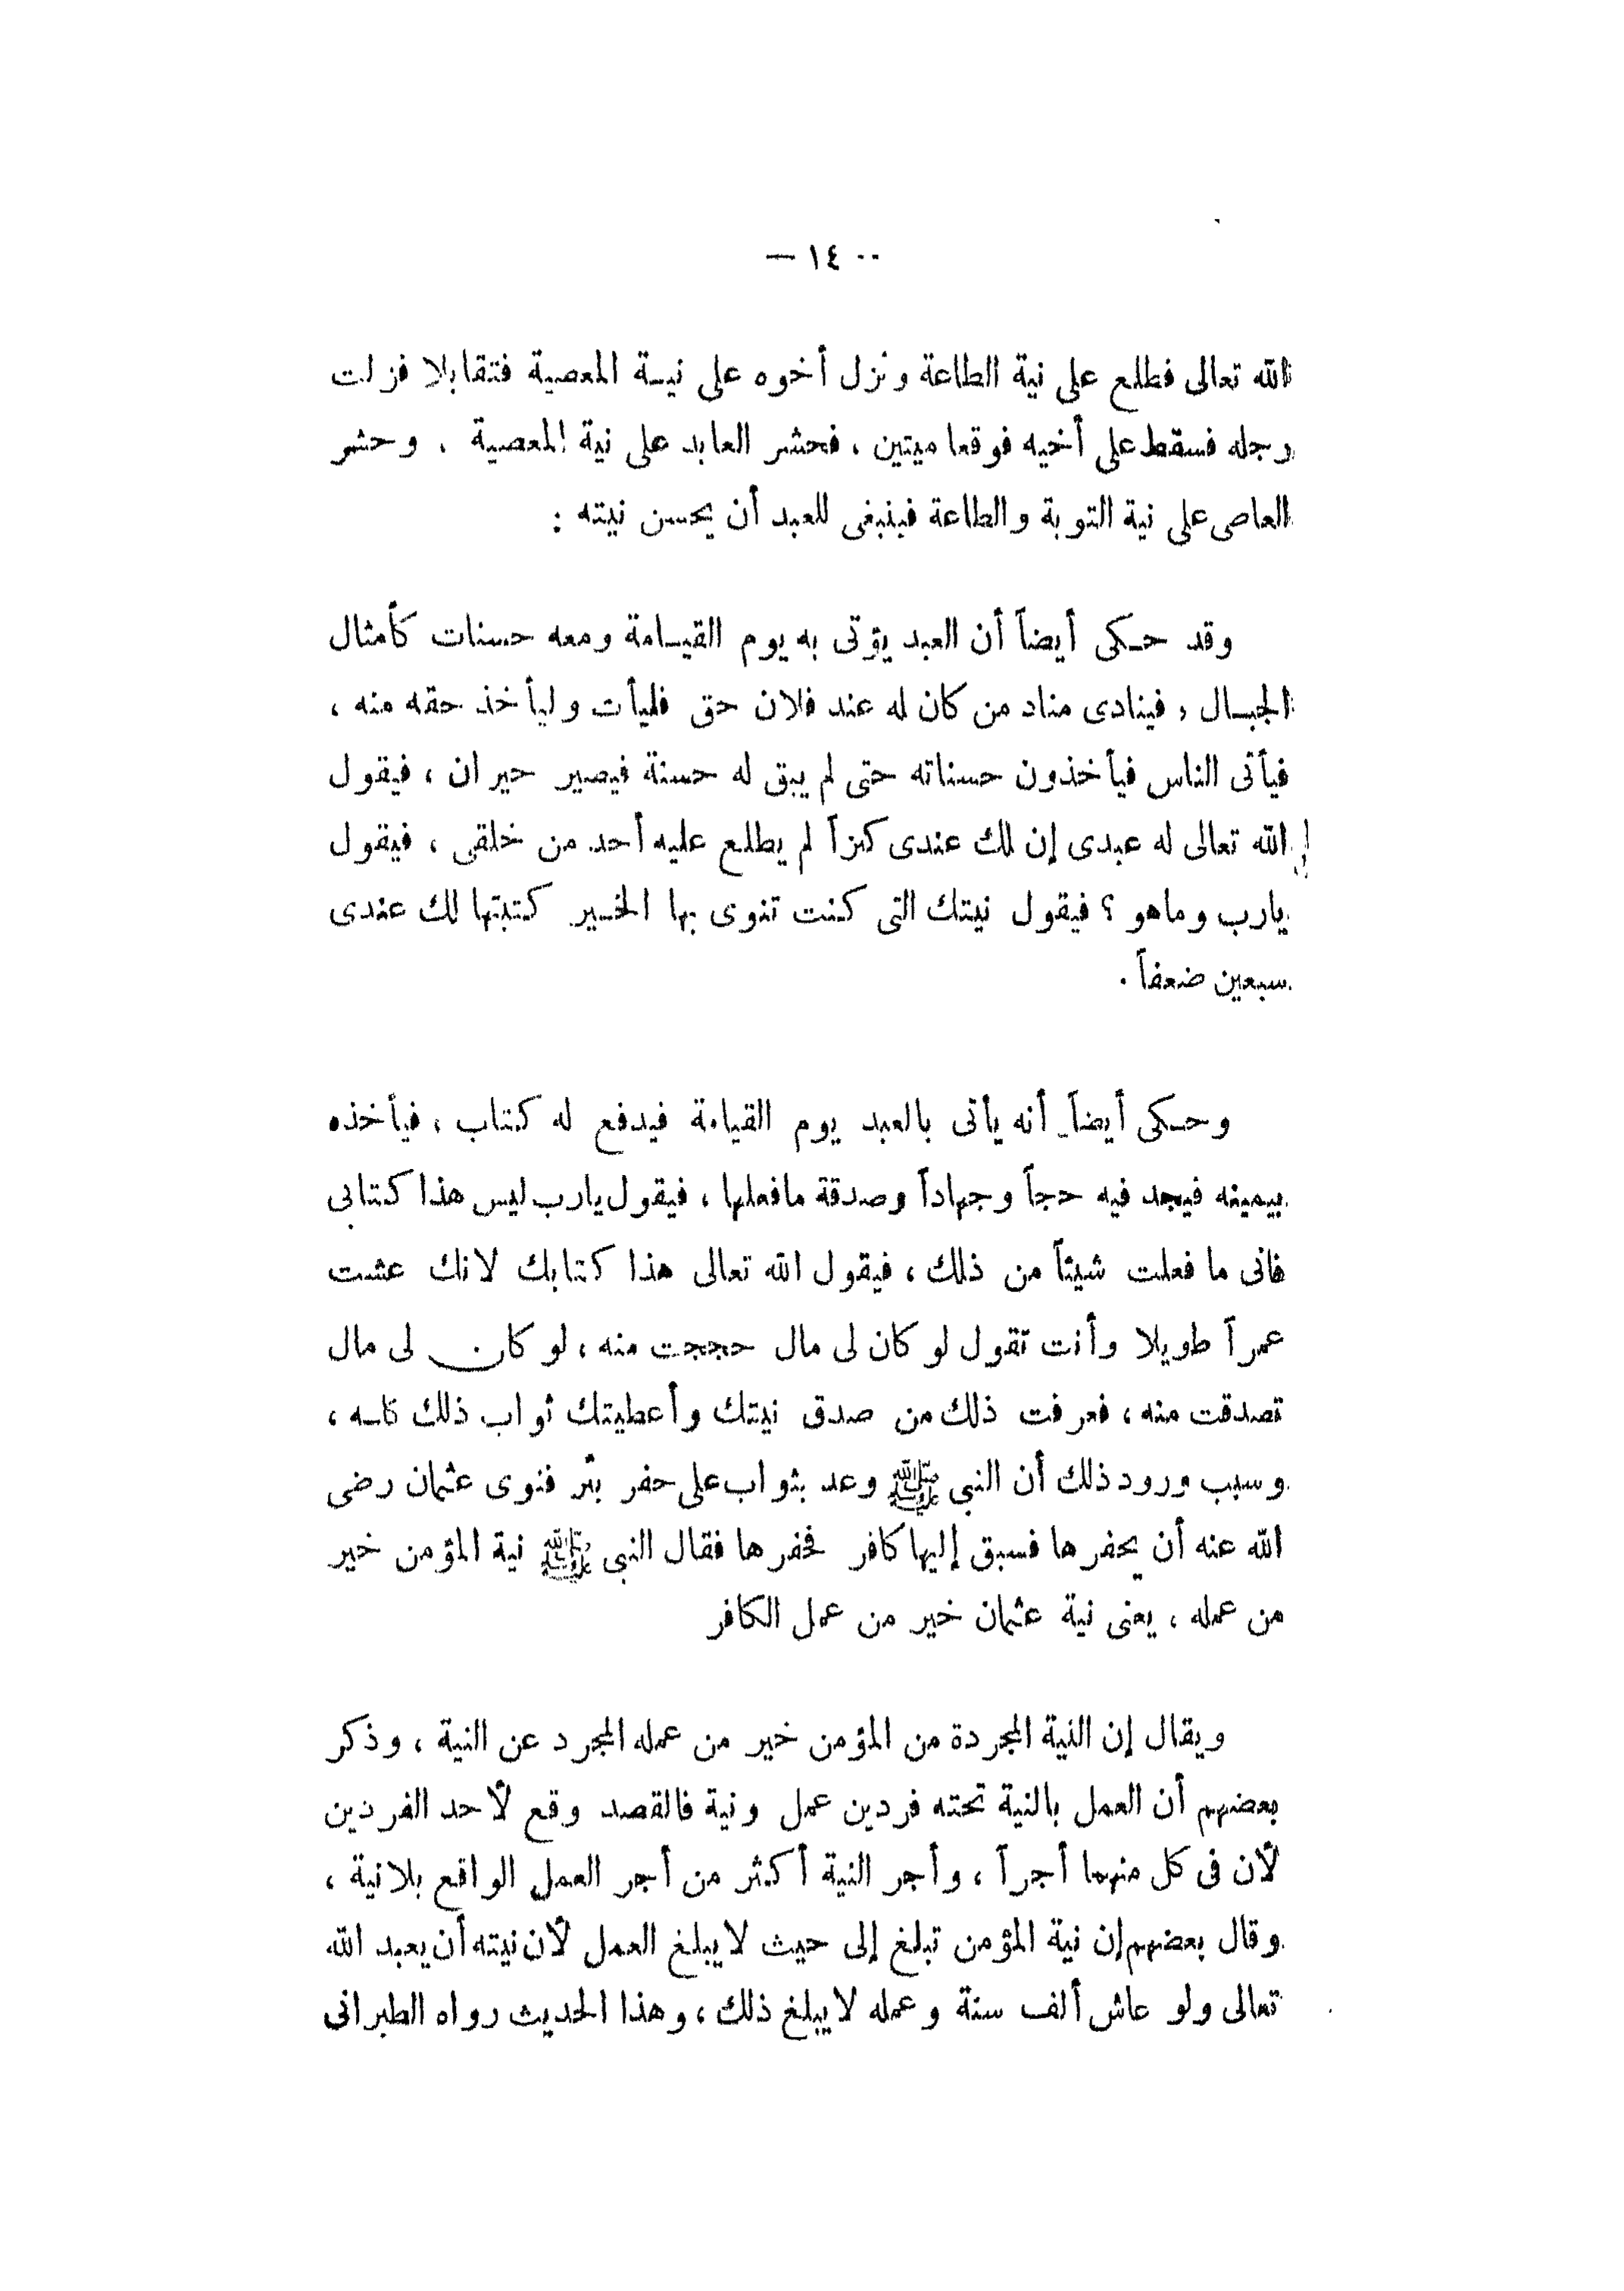 — ١٤ —
الله تعالى فطلع على نية الطاعة ونزل أخوه على نيـة المعصية فتقابلا فزلت
رجله فسقط على أخيه فوقعا ميتين ، فحشر العابد على نية المعصية . وحشر
العاصى على نية التوبة والطاعة فينبغى للعبد أن يحسن نيته :
وقد حـكى أيضاً أن العبد يؤتى به يوم القيـامة ومعه حسنات كأمثال
الجبـال , فينادى مناد من كان له عند فلان حق فليأت وليأخذ حقه منه ،
فيأتى الناس فيأخذون حسناته حتى لم يبق له حسنة فيصير حيران ، فيقول
الله تعالى له عبدى إن لك عندى كنزاً لم يطلع عليه أحد من خلقى ، فيقول
يارب وماهو ؟ فيقول نيتك التى كنت تنوى بها الخـير كتبتها لك عندى
سبعين ضعفاً .
وحـكى أيضاً أنه يأتى بالعبد يوم القيامة فيدفع له كتاب ، فيأخذه
بيمينه فيجد فيه حجاً وجهاداً وصدقة مافعلها ، فيقول يارب ليس هذا كتابى
فانى ما فعلت شيئاً من ذلك ، فيقول الله تعالى هذا كتابك لانك عشت
عمراً طويلا وأنت تقول لو كان لى مال حججت منه ، لو كان لى مال
تصدقت منه ، فعرفت ذلك من صدق نيتك وأعطيتك ثواب ذلك كله ،
وسبب ورود ذلك أن النبى ﷺ وعد بثواب على حفر بئر فنوى عثمان رضى
الله عنه أن يحفرها فسبق إليها كافر فحفرها فقال النبى ﷺ نية المؤمن خير
من عمله ، يعنى نية عثمان خير من عمل الكافر
ويقال إن النية المجردة من المؤمن خير من عمله المجرد عن النية ، وذكر
بعضهم أن العمل بالنية تحته فردين عمل ونية فالقصد وقع لأحد الفردين
لأن فى كل منهما أجراً ، وأجر النية أكثر من أجر العمل الواقع بلانية ،
وقال بعضهم إن نية المؤمن تبلغ إلى حيث لايبلغ العمل لأن نيته أن يعبد الله
تعالى ولو عاش ألف سنة وعمله لايبلغ ذلك ، وهذا الحديث رواه الطبرانى